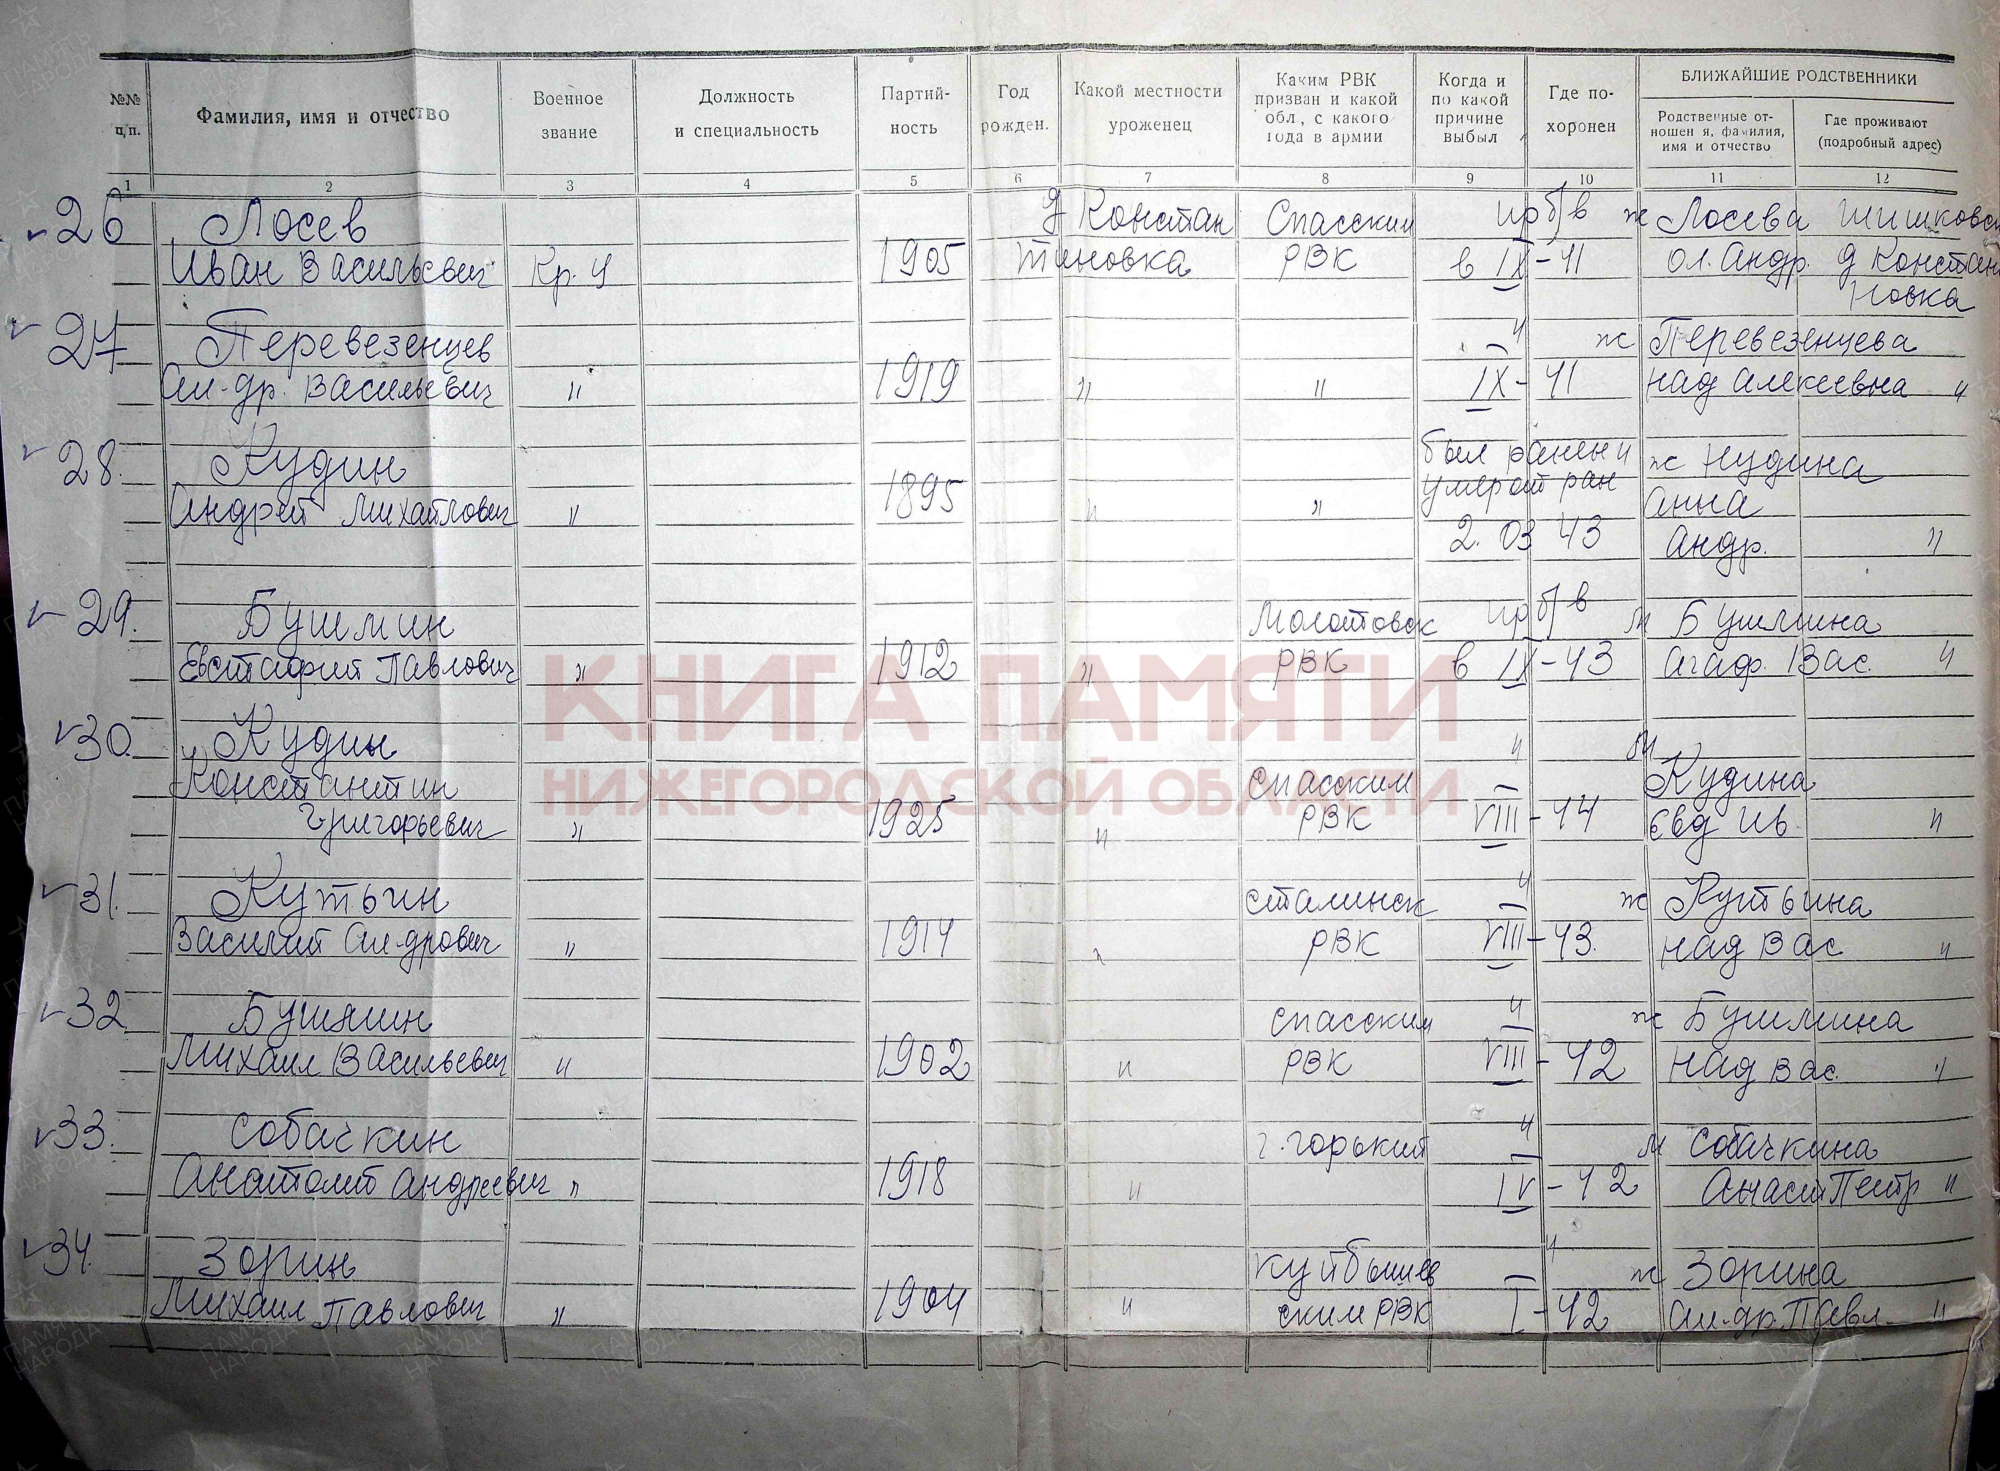 №№ п.п.
Фамилия, имя и отчество
Военное звание
Должность и специальность
Партий- ность
Год рожден.
Какой местности уроженец
Каким РВК призван и какой обл, с какого года в армии
Когда и по какой причине выбыл
Где по- хоронен
БЛИЖАЙШИЕ РОДСТВЕННИКИ
Родственные от- ношен я, фамилия, имя и отчество
Где проживают (подробный адрес)
1 2 3 4 5 6 7 8 9 10 11 12
26 Лосев д Констан Спасским пр б/в ж Лосева Шишковск
Иван Васильевич Кр. 1905 тиновка РВК в IX-41 ол. Андр. д Констан
новка
27 Перевезенцев " ж Перевезенцева
Ал-др. Васильевич " 1919 " " IX-41 Над Алексевна "
28. Кудин был ранен и ж Кудина
Андрей Михайлович " 1895 " " умер от ран Анна
2. 03 43 Андр. "
29. Бушмин Молотовск пр б/в м Бушмина
Евстафий Павлович " 1912 " РВК в IX-43 Агаф. Вас. "
30. Кудин " м
Константин Спасским Кудина
Григорьевич " 1925 " РВК VIII-44 Евд Ив. "
31. Кутьин Сталинск " ж Кутьина
Василий Ал-дрович " 1914 " РВК VIII-43. Над Вас "
32 Бушмин Спасским " ж Бушмина
Михаил Васильевич " 1902 " РВК VIII-42 Над Вас. "
33. Собачкин г. Горький " м Собачкина
Анатолий Андреевич " 1918 " IV-42 Анаст Петр "
34. Зорин Куйбышев " ж Зорина
Михаил Павлович " 1904 " ским РВК I-42 Ал-др. Павл. "
КНИГА ПАМЯТИ
НИЖЕГОРОДСКОЙ ОБЛАСТИ
ПАМЯТЬ НАРОДА